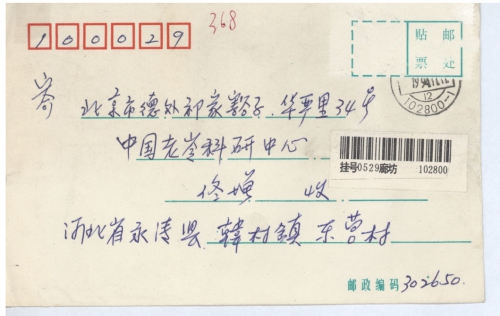 100029
368
贴 邮
票 处
102800-1
12
寄
北京市德外祁家豁子,华严里34号
中国老龄科研中心
收
挂号0529廊坊 102800
河北省永清县 韩村镇 东营村
邮政编码 302650.